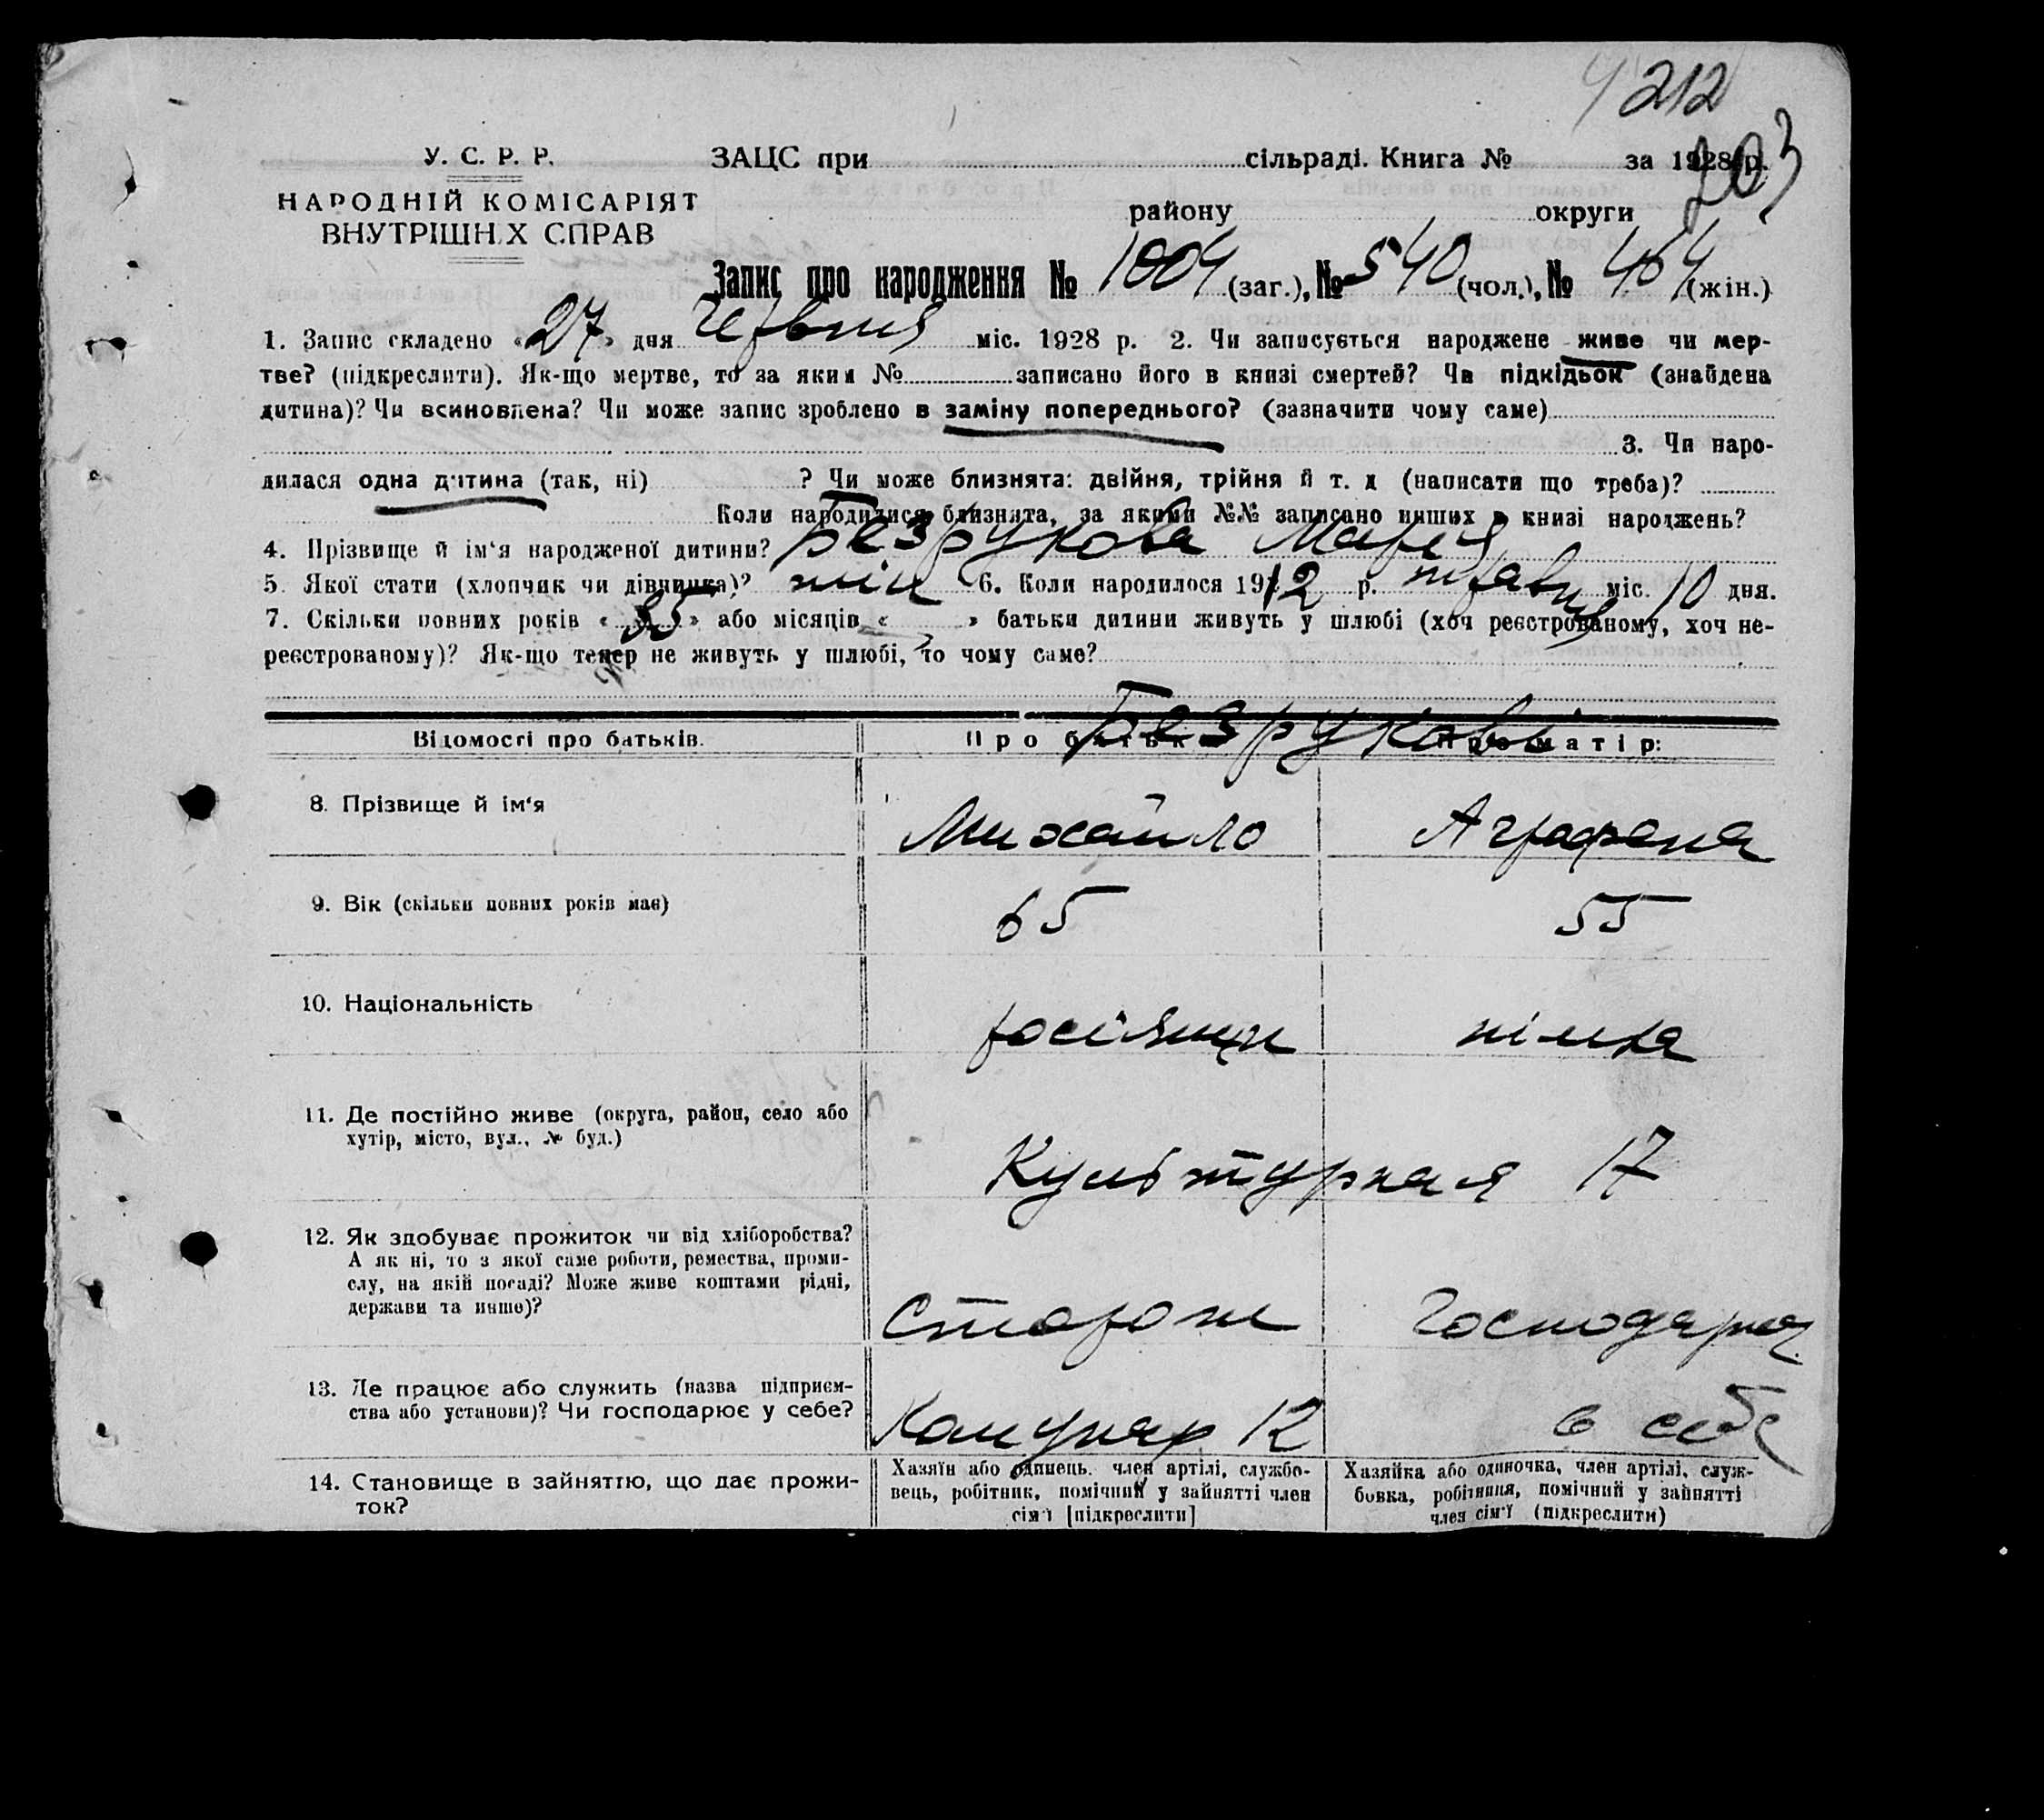 4 212
203
У. С. Р. Р.
НАРОДНІЙ КОМІСАРІЯТ
ВНУТРІШНІХ СПРАВ
ЗАЦС при сільраді. Книга № за 1928 р.
району округи
Запис про народження № 1004 (заг.), № 540 (чол.), № 464 (жін.)
1. Запис складено «27» дня Червня міс. 1928 р. 2. Чи записується народжене живе чи мер-
тве? (підкреслити). Як-що мертве, то за яким № записано його в книзі смертей? Чи підкідьок (знайдена
дитина)? Чи всиновлена? Чи може запис зроблено в заміну попереднього? (зазначити чому саме)
3. Чи наро-
дилася одна дитина (так, ні) ? Чи може близнята: двійня, трійня й т. д (написати що треба)?
Коли народилися близнята, за якими №№ записано инших в книзі народжень?
4. Прізвище й ім‘я народженої дитини? Безрукова Мария
5. Якої стати (хлопчик чи дівчинка)? жін 6. Коли народилося 1912 р. травня міс. 10 дня.
7. Скільки повних років «35» або місяців « » батьки дитини живуть у шлюбі (хоч реєстрованому, хоч не-
реєстрованому)? Як-що тепер не живуть у шлюбі, то чому саме?
Безрукови
Відомості про батьків. Про батька Про матір:
8. Прізвище й ім‘я Михайло Аграфена
9. Вік (скільки повних років має) 65 55
10. Національність росіянин німка
11. Де постійно живе (округа, район, село або
хутір, місто, вул., № буд.)
Культурная 17
12. Як здобуває прожиток чи від хліборобства?
А як ні, то з якої саме роботи, ремества, проми-
слу, на якій посаді? Може живе коштами рідні,
держави та инше)?
Сторож Господарка
13. Де працює або служить (назва підприєм-
ства або установи)? Чи господарює у себе?
Комунар 12 в себе
14. Становище в зайняттю, що дає прожи-
ток?
Хазяїн або одинець. член артілі, службо-
вець, робітник, помічний у зайнятті член
сім‘ї [підкреслити]
Хазяйка або одиночка, член артілі, служ-
бовка, робітниця, помічний у зайнятті
член сім‘ї (підкреслити)